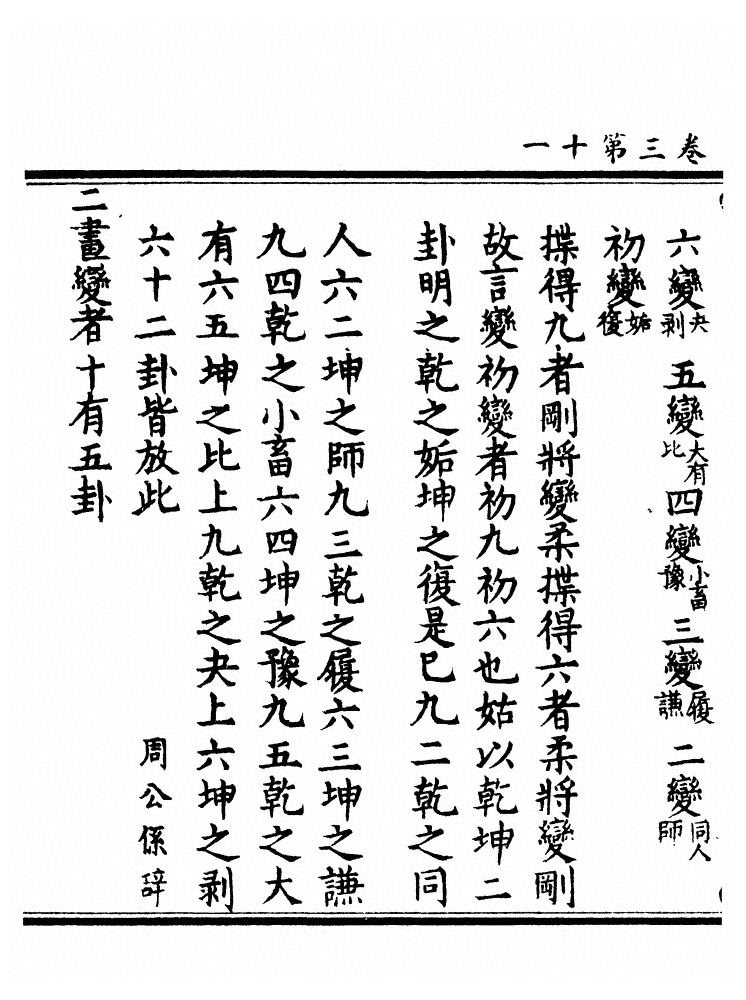 卷三第十一
六變夬剥五變大有比四變小畜豫三變履謙二變同人師
初變姤復
揲得九者剛將變柔揲得六者柔將變剛
故言變初變者初九初六也姑以乾坤二
卦明之乾之姤坤之復是巳九二乾之同
人六二坤之師九三乾之履六三坤之謙
九四乾之小畜六四坤之豫九五乾之大
有六五坤之比上九乾之夬上六坤之剥
六十二卦皆放此 周公係辭
二畫變者十有五卦